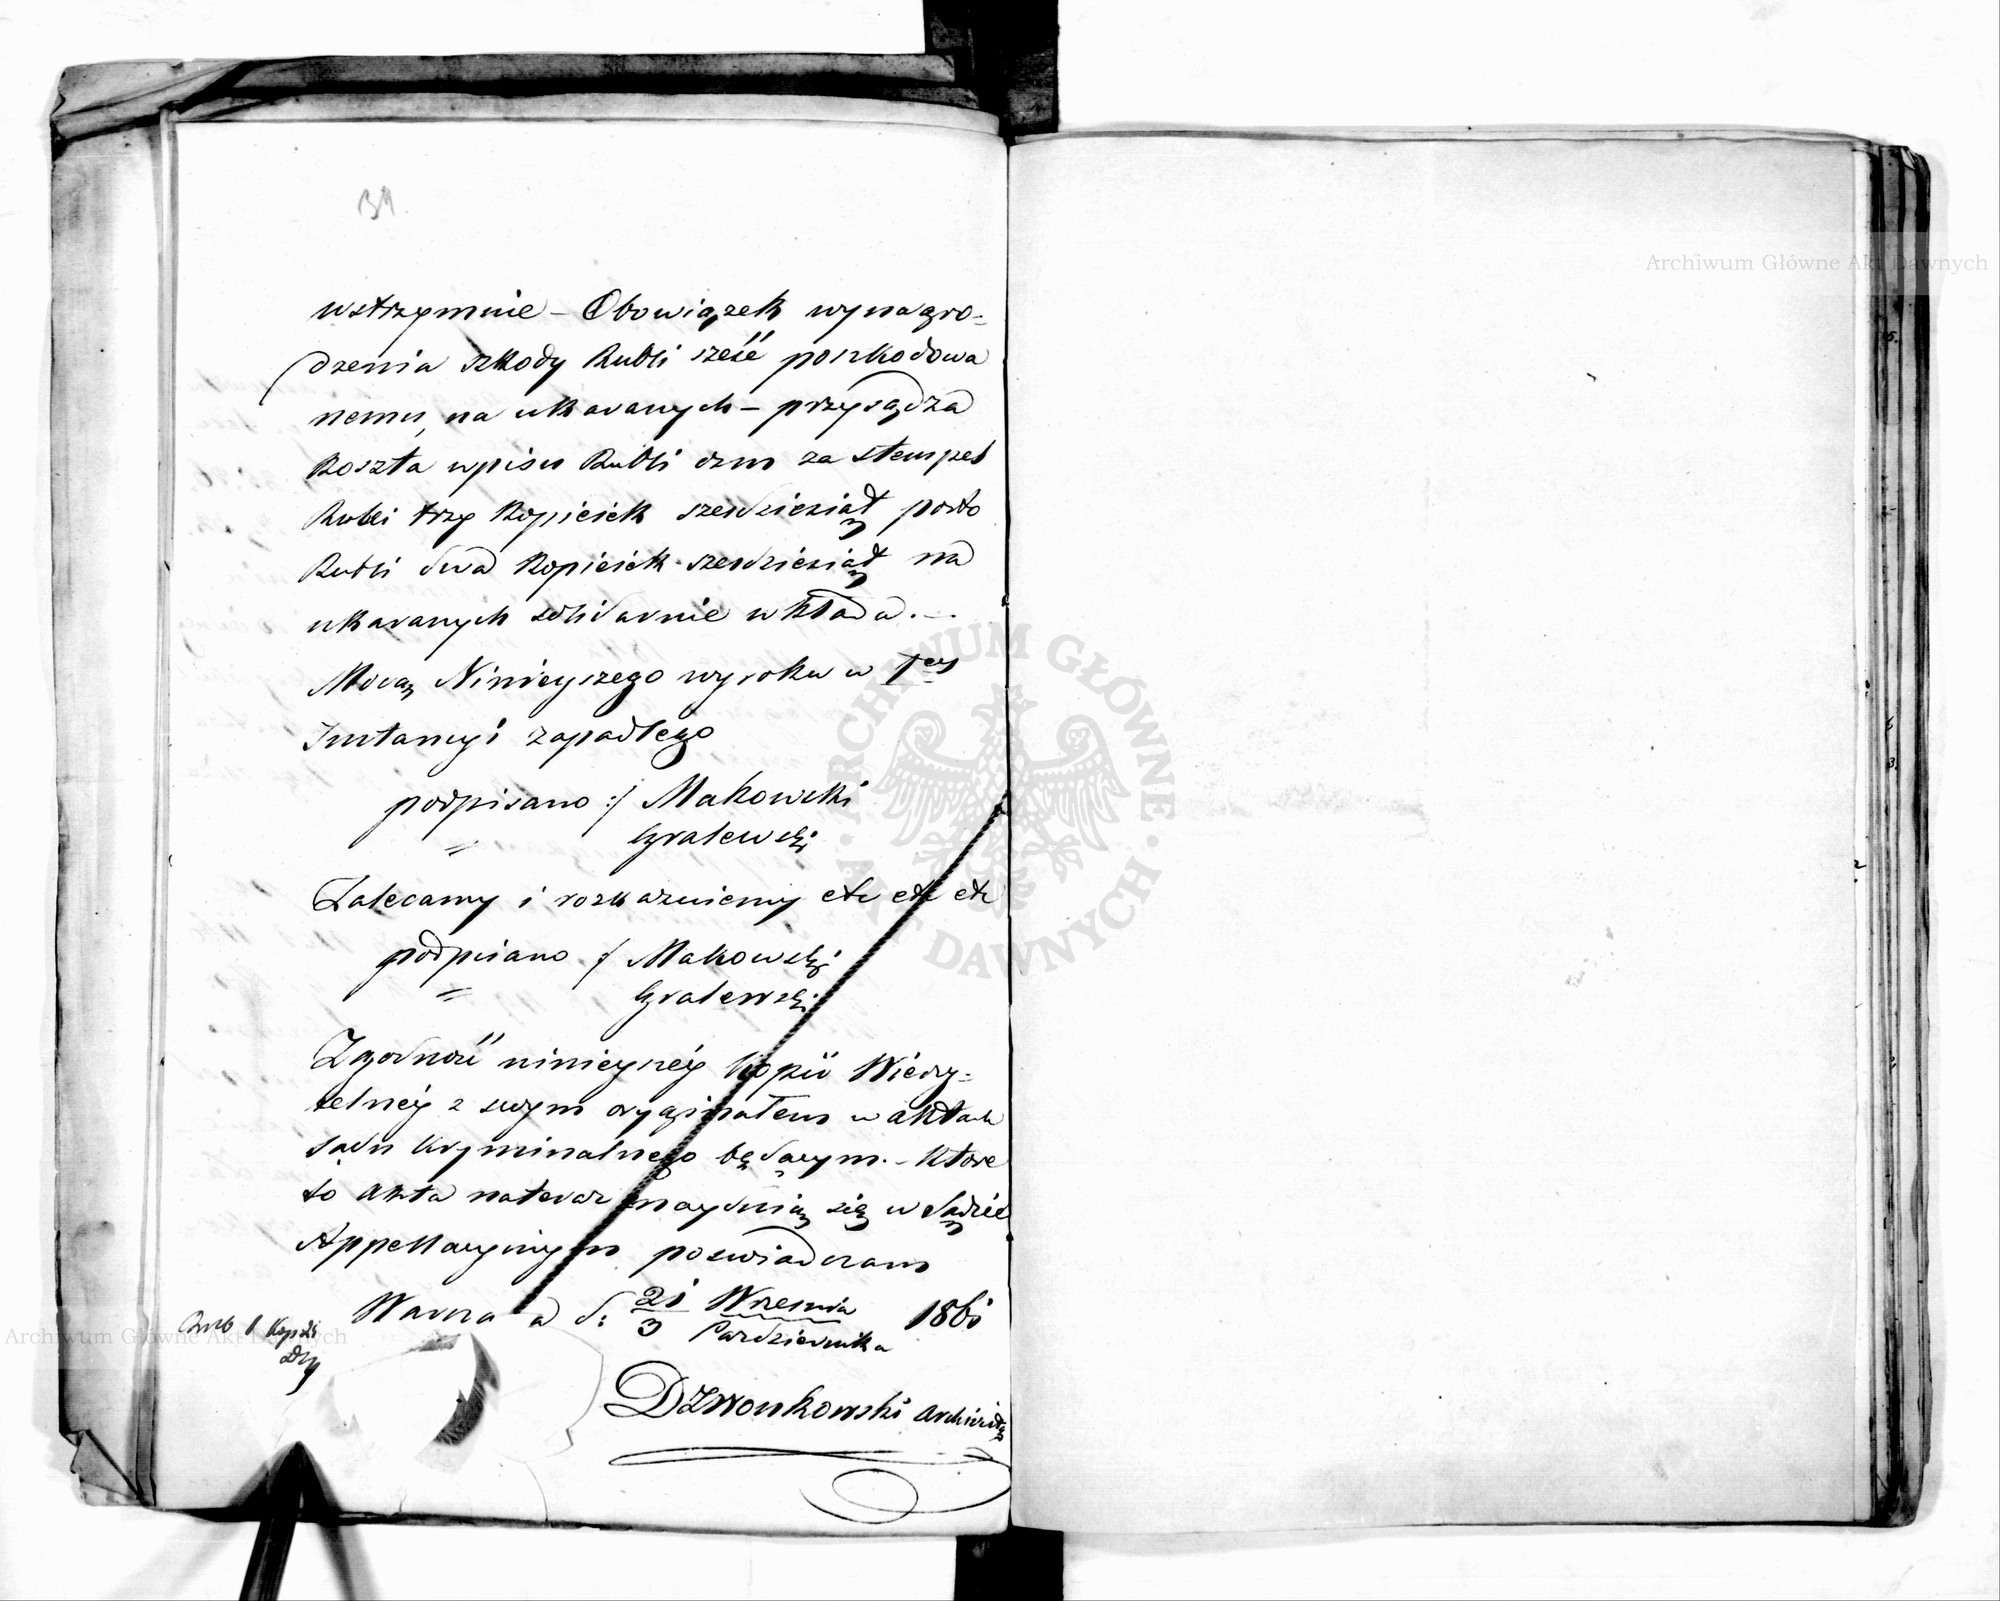 wstrzymnie – Obowiązek wynagro=
dzenia szkody Rubli sześć poszkodowa
nemu, na ukaranych – przysądza
Koszta wpisu Rubli ośm za stempel
Rubli trzy Kopieiek sześdziesiąt porto
Rubli dwa Kopieiek sześdziesiąt na
ukaranych solidarnie wkłada. –
Mocą Ninieyszego wyroku w 1ey
Instancyi zapadłego
podpisano :/ Makowski
" Gralewski
Zalecamy i rozkazuiemy etc etc etc
podpisano / Makowski
" Gralewski
Zgodność ninieyszéy kopii Wierzy=
telnéy z swym oryginałem w aktach
Sądu Kryminalnego będącym. – które
to akta nateraz znayduią się w Sądzie
Appellacyinym poświadczam
Warsza a d: 21/3 Września/Pazdziernika 1860
Dzwonkowski Archivista
Archiwum Główne Akt Dawnych
Archiwum Główne Akt Dawnych
ARCHIWUM GŁÓWNE AKT DAWNYCH